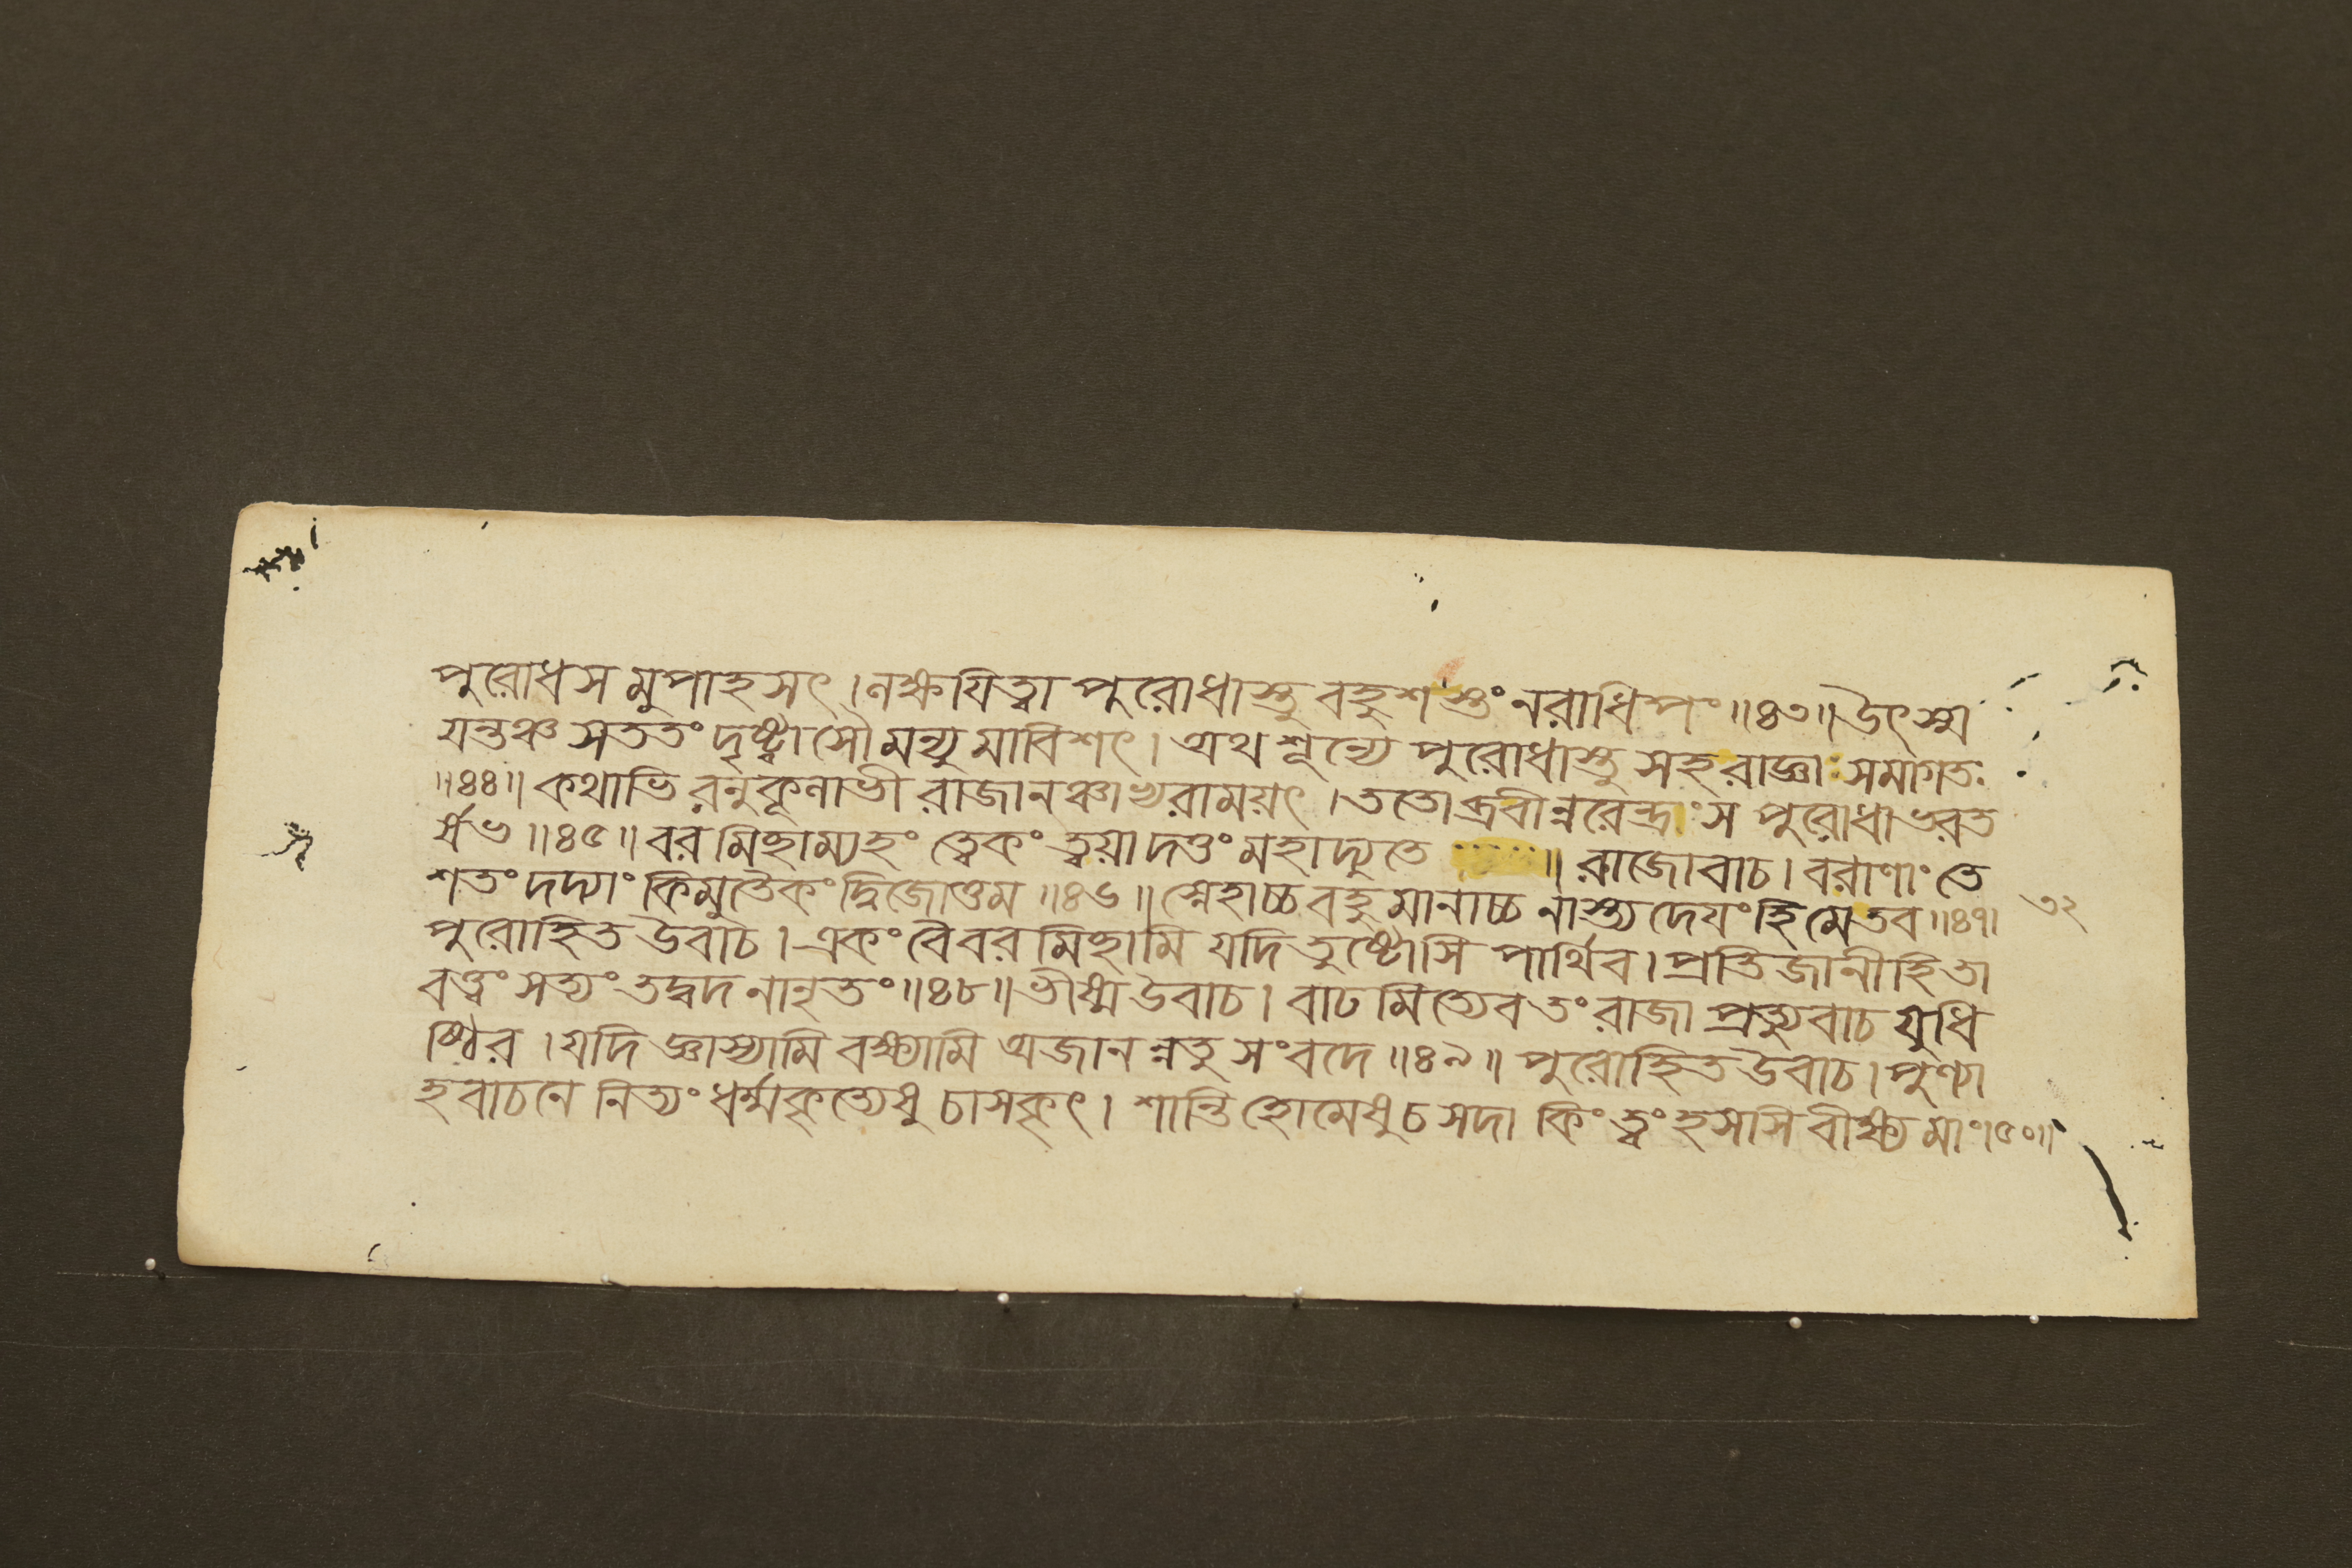 পুরোধস মুপাহসৎ । লক্ষযিত্বা পুরোধাস্তু বহুশস্তং নরাধিপং ॥৪৩॥ উৎস্ম
যন্তঞ্চ সততং দৃষ্ট্বাসৌ মন্যুমাবিশৎ । অথ শূন্যে পুরোধাস্তু সহ রাজ্ঞা সমাগতঃ
॥৪৪॥ কথাভি রনুকূলাভী রাজানঞ্চাভ্যরাময়ৎ । ততোব্রবীন্নরেন্দ্রং স পুরোধা ভরত
র্ষভ ॥৪৫॥ বরমিছাম্যহং ত্বেকং ত্বয়া দত্তং মহাদ্যুতে ॥ রাজোবাচ । বরাণাং তে
শতং দদ্যাং কিমুতৈকং দ্বিজোত্তম ॥৪৬॥ স্নেহাচ্চ বহুমানাচ্চ নাস্ত্যদেযং হি মে তব ॥৪৭।
৩২
পুরোহিত উবাচ । একং বৈ বরমিছামি যদি তুষ্টোসি পার্থিব । প্রতিজানীহি তা
বত্ত্বং সত্যং তদ্বদ নানৃতং ॥৪৮॥ ভীষ্ম উবাচ । বাঢমিত্যেব তং রাজা প্রত্যুবাচ যুধি
ষ্ঠির । যদি জ্ঞাস্যামি বক্ষ্যামি অজানন্নতু সংবদে ॥৪৯॥ পুরোহিত উবাচ । পুণ্যা
হবাচনে নিত্যং ধর্ম্মকৃত্যেষু চাসকৃৎ । শান্তিহোমেষু চ সদা কিং ত্বং হসসি বীক্ষ্য মাং।৫০॥